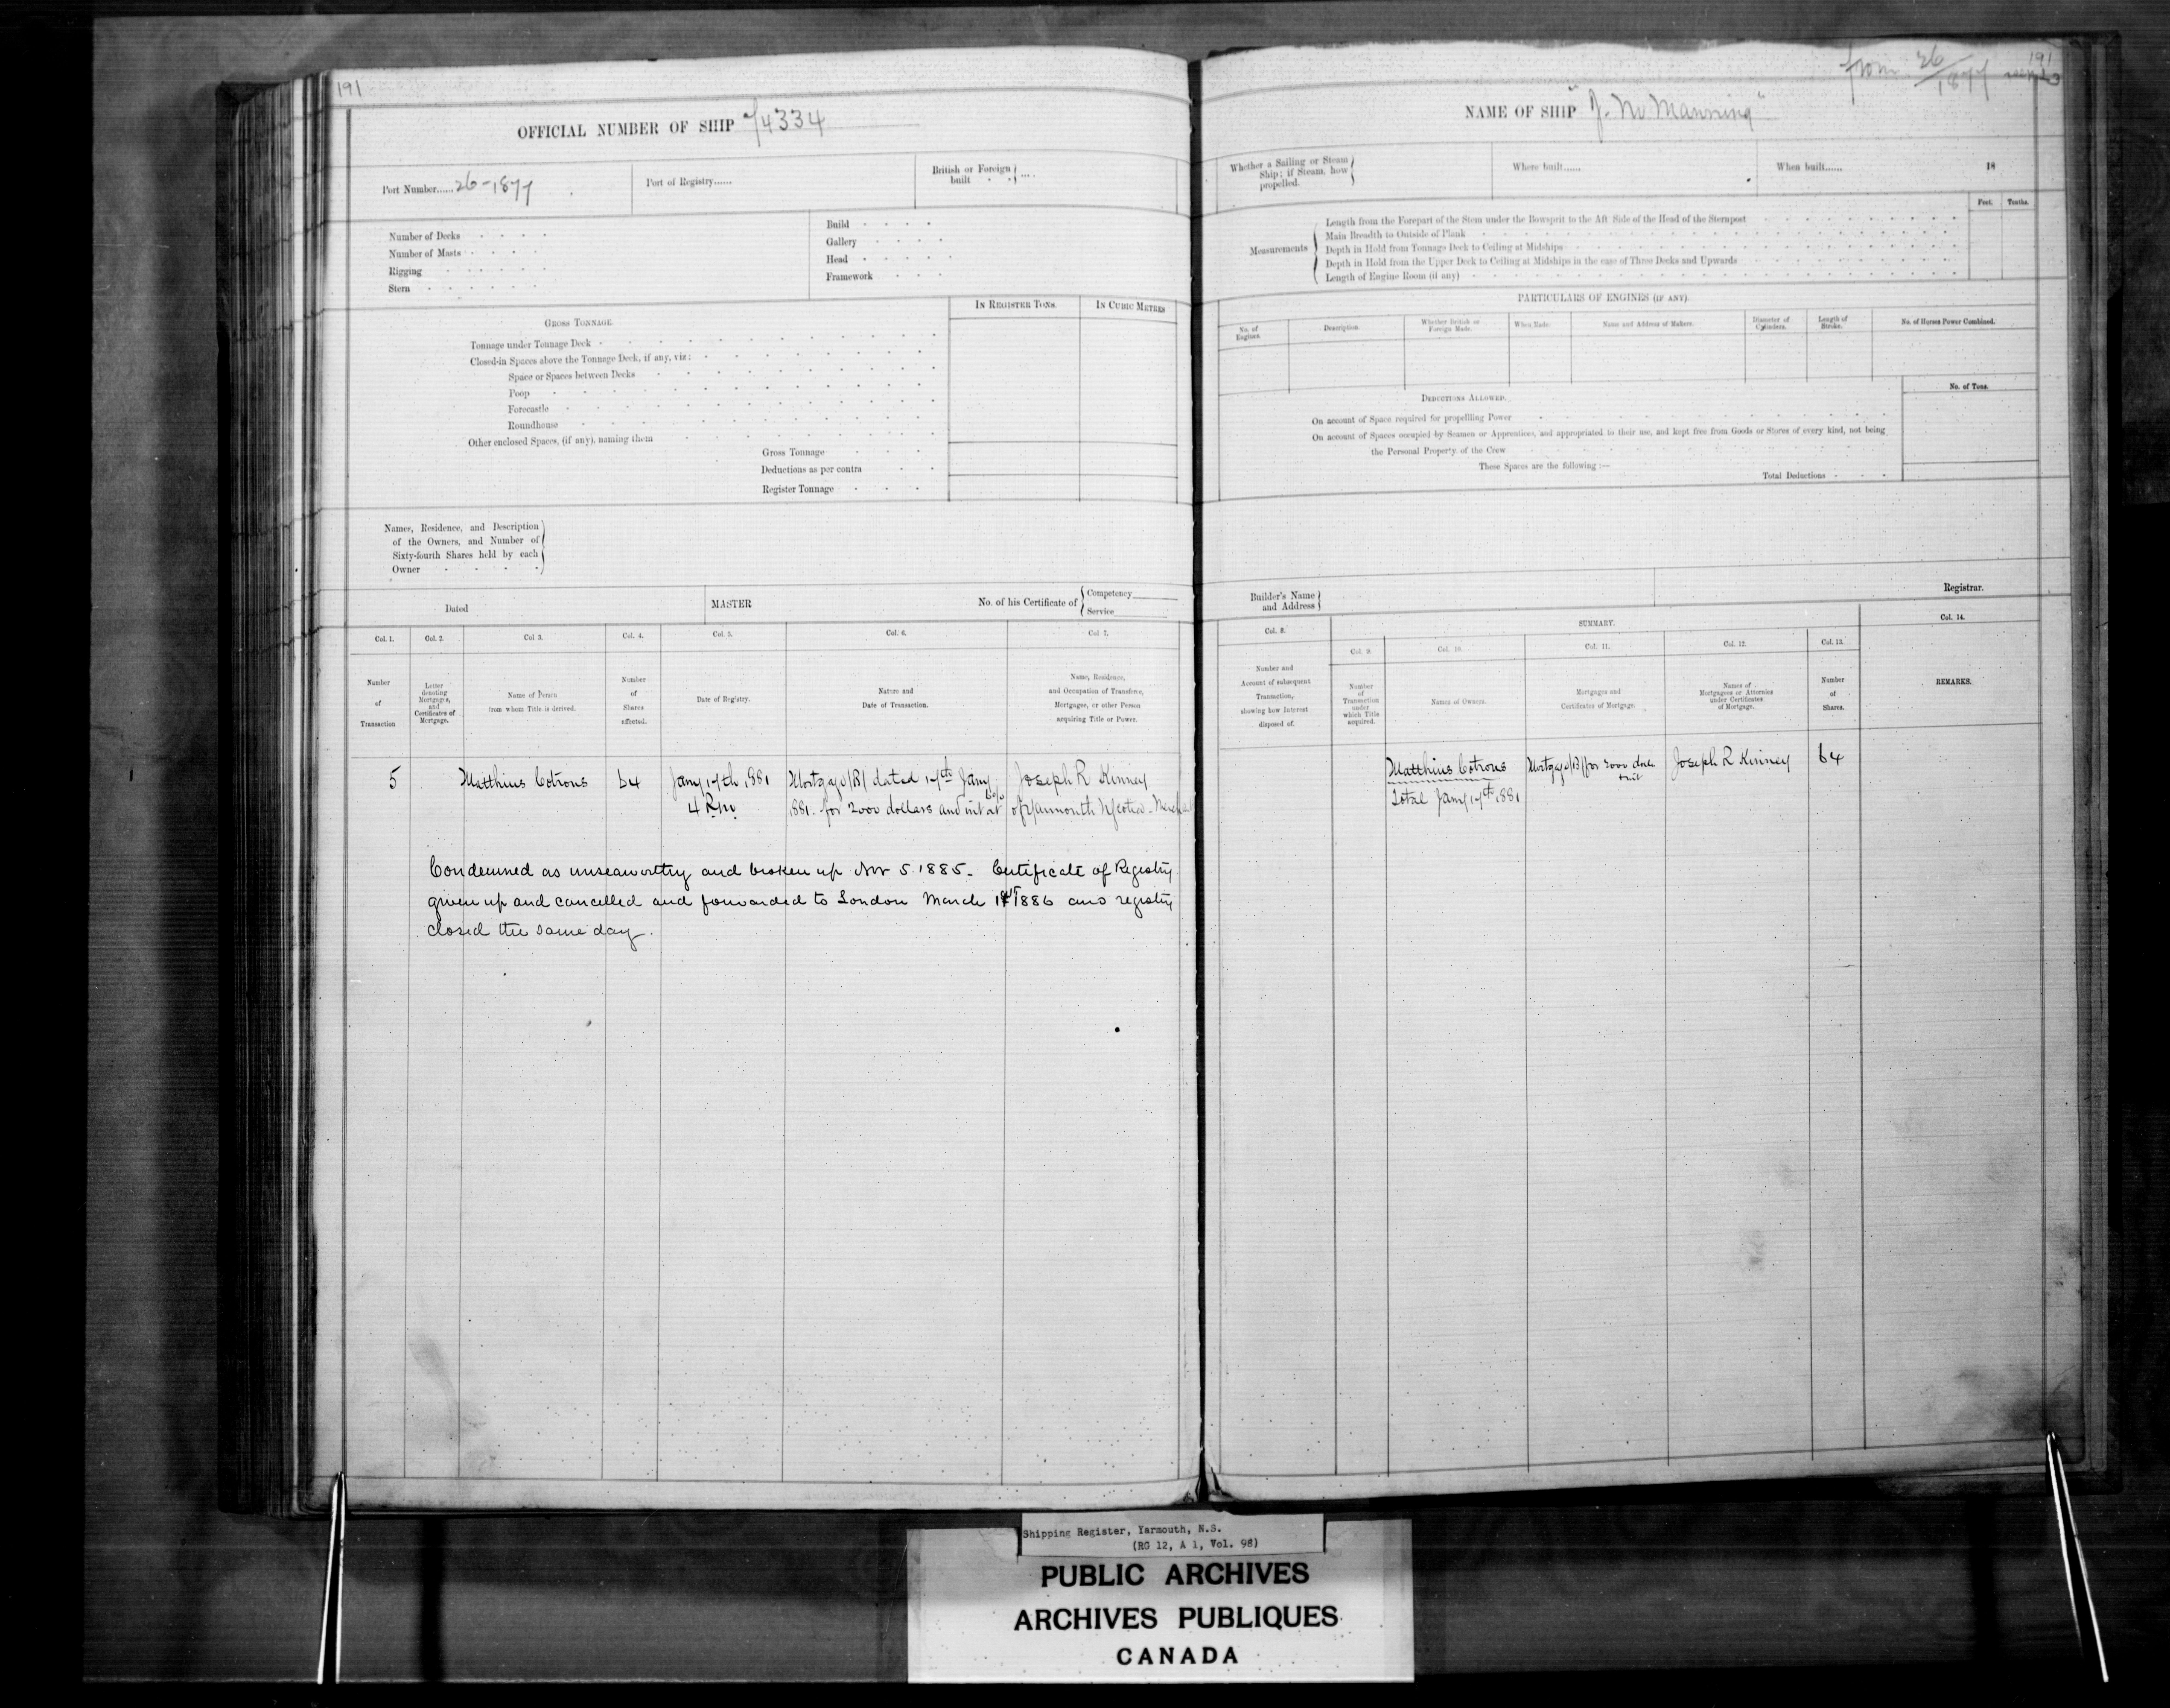 191
OFFICIAL NUMBER OF SHIP 74334
Port Number...... 26-1877
Port of Registry......
British or Foreign built
Number of Decks
Number of Masts
Rigging
Stern
Build
Gallery
Head
Framework
IN REGISTER TONS.
IN CUBIC METRES
GROSS TONNAGE
Tonnage under Tonnage Deck
Closed-in Spaces above the Tonnage Deck, if any, viz:
Space or Spaces between Decks
Poop
Forecastle
Roundhouse
Other enclosed Spaces, (if any), naming them
Gross Tonnage
Deductions as per contra
Register Tonnage
Names, Residence, and Description
of the Owners, and Number of
Sixty-fourth Shares held by each
Owner
Dated
MASTER
No. of his Certificate of
Competency
Service
Col. 1.
Col. 2.
Col 3.
Col. 4.
Col. 5.
Col. 6.
Col 7.
Number of Transaction
Letter denoting Mortgages, and Certificates of Mortgage.
Name of Person from whom Title is derived.
Number of Shares affected.
Date of Registry.
Nature and Date of Transaction.
Name, Residence, and Occupation of Transferee, Mortgagee, or other Person acquiring Title or Power.
5
Matthius
64
Jany 17th 1881
4 P.m.
Mortgage (B) dated 17th Jany
1881. for 2000 dollars and int at
Joseph R Kinney
of Yarmouth N Scotia - Merchant
Condemned as unseaworthy and broken up Nov 5 1885. Certificate of Registry
given up and cancelled and forwarded to London March 1886 and registry
closed the same day.
from 26/1877
191
NAME OF SHIP "J. W. Manning"
Whether a Sailing or Steam
Ship; if Steam, how
propelled.
Where built......
When built......
18
Feet.
Tenths.
Measurements
Length from the Forepart of the Stem under the Bowsprit to the Aft Side of the Head of the Sternpost
Main Breadth to Outside of Plank
Depth in Hold from Tonnage Deck to Ceiling at Midships
Depth in Hold from the Upper Deck to Ceiling at Midships in the case of Three Decks and Upwards
Length of Engine Room (if any)
PARTICULARS OF ENGINES (IF ANY)
No. of Engines.
Description.
Whether British or Foreign Made.
When Made.
Name and Address of Makers.
Diameter of Cylinders.
Length of Stroke.
No. of Horses Power Combined.
DEDUCTIONS ALLOWED.
No. of Tons.
On account of Space required for propelling Power
On account of Spaces occupied by Seamen or Apprentices, and appropriated to their use, and kept free from Goods or Stores of every kind, not being
the Personal Property of the Crew
These Spaces are the following:—
Total Deductions
Builder's Name
and Address
Registrar.
Col. 8.
SUMMARY.
Col. 14.
Col. 9.
Col. 10.
Col. 11.
Col. 12.
Col. 13.
Number and Account of subsequent Transaction, showing how Interest disposed of.
Number of Transaction under which Title acquired.
Names of Owners.
Mortgages and Certificates of Mortgage.
Names of Mortgagees or Attornies under Certificates of Mortgage.
Number of Shares.
REMARKS.
Matthius
Total Jany 17th 1881
Mortgage (B) for 2000
Joseph R Kinney
64
Shipping Register, Yarmouth, N.S.
(RG 12, A 1, Vol. 98)
PUBLIC ARCHIVES
ARCHIVES PUBLIQUES
CANADA